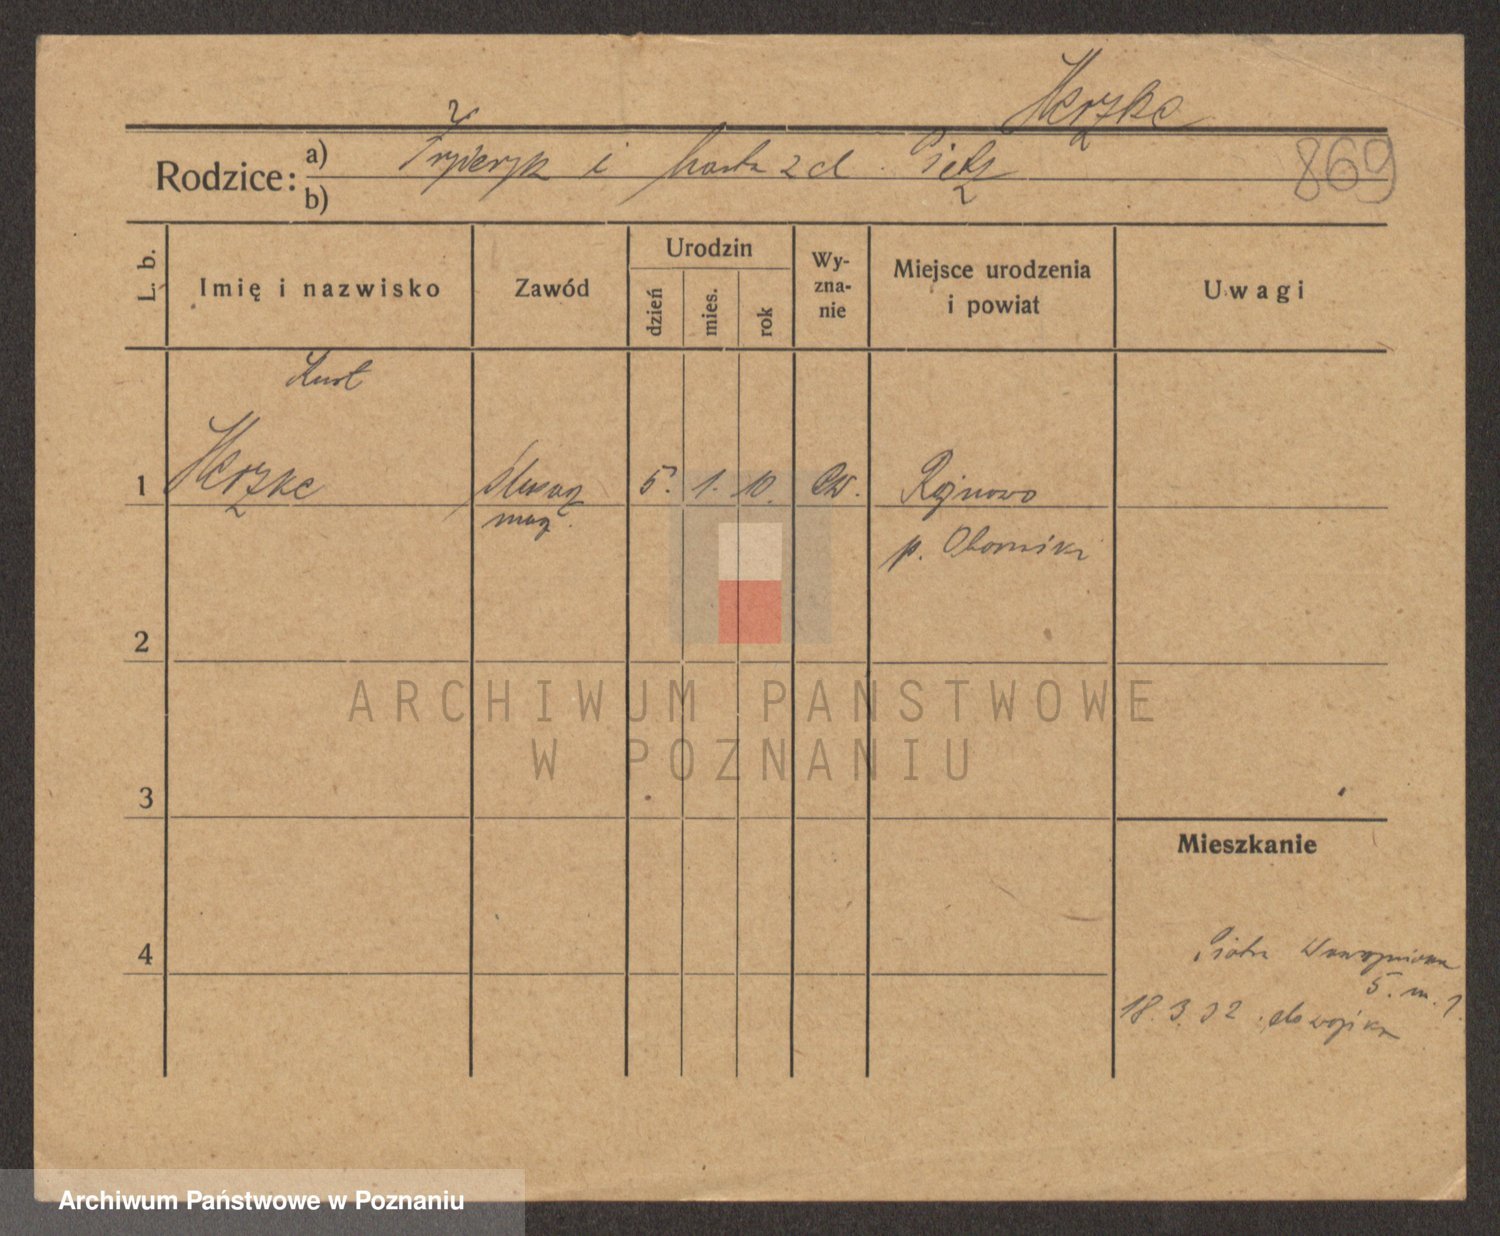 Herzke
Rodzice:
a) Fryderyk i Marta z d. Pietz
869
b)
L. b.
Imię i nazwisko
Zawód
Urodzin
dzień
mies.
rok
Wy-
zna-
nie
Miejsce urodzenia
i powiat
Uwagi
Kurt
1 Herzke ślusarz 5. 1. 10. ew. Rożnowo
masz.
p. Oborniki
2
ARCHIWUM PAŃSTWOWE
W POZNANIU
3
Mieszkanie
4
Piotra Wawrzyniaka
5. m. 1.
18. 3. 32. do wojska
Archiwum Państwowe w Poznaniu